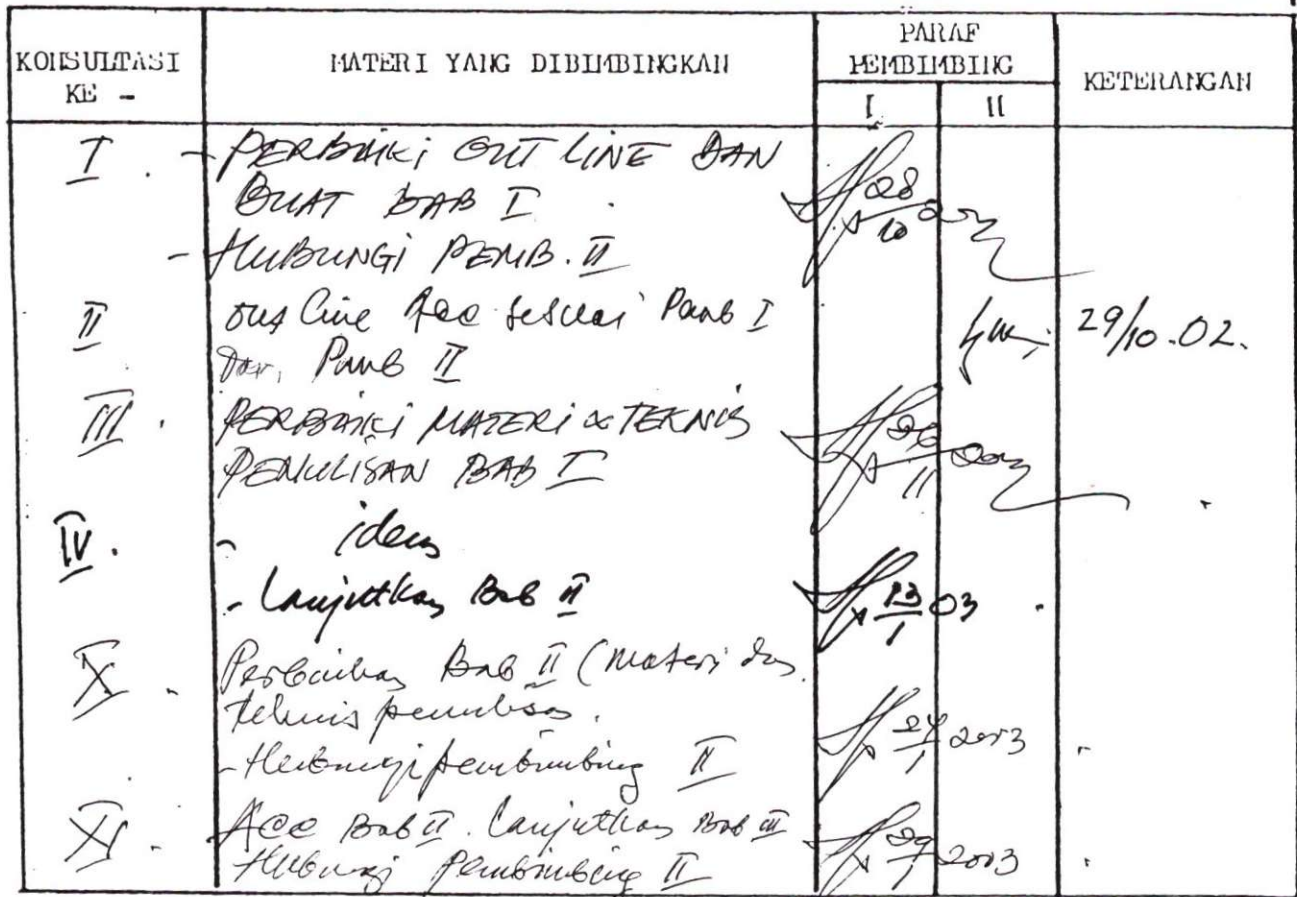 KONSULTASI KE -
MATERI YANG DIBIMBINGKAN
PARAF PEMBIMBING
I
II
KETERANGAN
I . - PERBAIKI OUT LINE DAN
BUAT BAB I
28/10
- HUBUNGI PEMB. II
II
out line Acc sesuai Pemb I
dan Pemb II
29/10.02.
III . PERBAIKI MATERI & TEKNIS
PENULISAN BAB I
26/11
IV . - idem
- Lanjutkan Bab II
13/1 03
X . Perbaikan Bab II (Materi dan
teknis penulisan.
- Hubungi pembimbing II
24/1 2003
XI . Acc Bab II. Lanjutkan Bab III
Hubungi Pembimbing II
29/1 2003